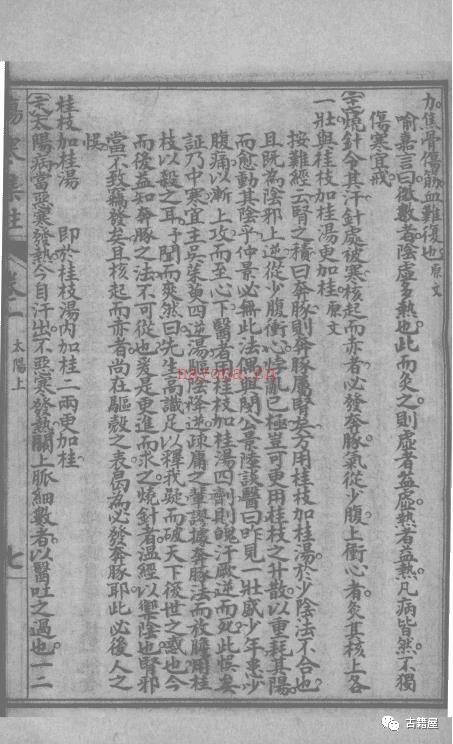 力焦骨傷筋血難復也原文
喻嘉言曰微數者陰虛多熱也此而灸之則虛者益虛熱者益熱凡病皆然不獨
傷寒宜戒
燒針令其汗針處被寒核起而赤者必發奔豚氣從少腹上衝心者灸其核上各
一壯與桂枝加桂湯更加桂原文
按難經云腎之積曰奔豚則奔豚屬腎矣方用桂枝加桂湯於少陰法不合也
且既為陰邪上逆從少腹衝心悸亂已極豈可更用桂枝之升散以重耗其陽
而愈動其陰乎仲景必無此法偶與閔公景陸談醫曰昨見一壯盛少年患少
腹痛以漸上攻而至心下醫者以桂枝加桂湯四劑則魄汗厥逆而死此悞矣
証乃中寒宜主吳茱萸四逆湯驅寒降逆疎庸之輩謬據奔豚法而放膽用桂
枝以殺之耳予聞而爽然曰先生高識足以釋我疑而破天下後世之惑也今
而後益知奔豚之法不可從也爰是更進而求之燒針者溫經以禦陰也腎邪
當不致竊發矣且核起而赤者尚在軀殼之表曷為必發奔豚耶此必後人之
悞
桂枝加桂湯 即於桂枝湯內加桂二兩更加桂
太陽病當惡寒發熱今自汗出不惡寒發熱關上脈細數者以醫吐之過也一二
太陽上
七
nayona.cn
古籍屋